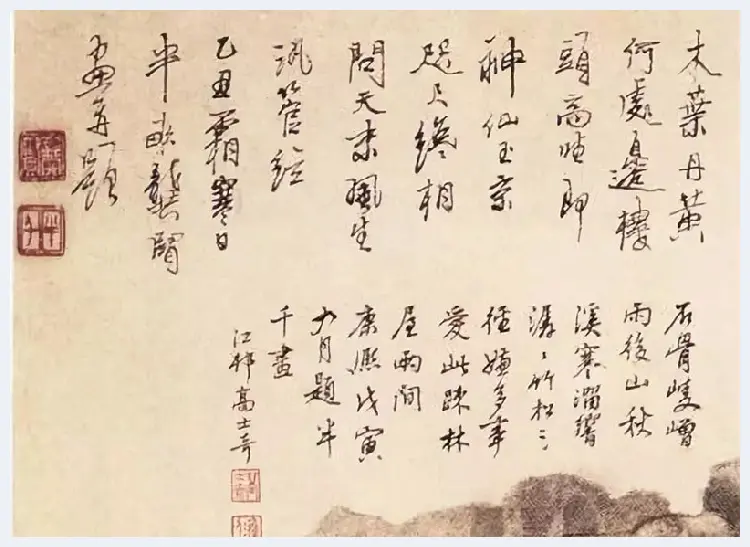 木葉丹黃
何處邊樓
頭高坐即
神仙玉京
咫尺纔相
問天末風生
汎管絃
乙丑霜寒日
半畝龔賢
畫并題
半千
石骨崚嶒
雨後山秋
溪寒溜響
潺〻竹松三
徑嫌多事
愛此疎林
屋兩間
康熙戊寅
九月題半
千畫
江邨高士奇